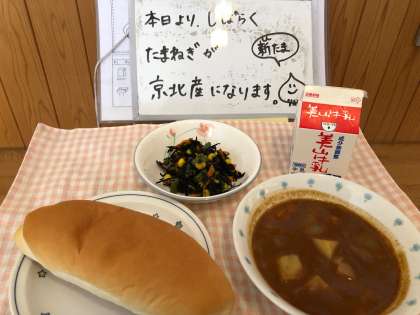 本日より、しばらく
たまねぎが
新たま
京北産になります。
美山牛乳
美山牛乳